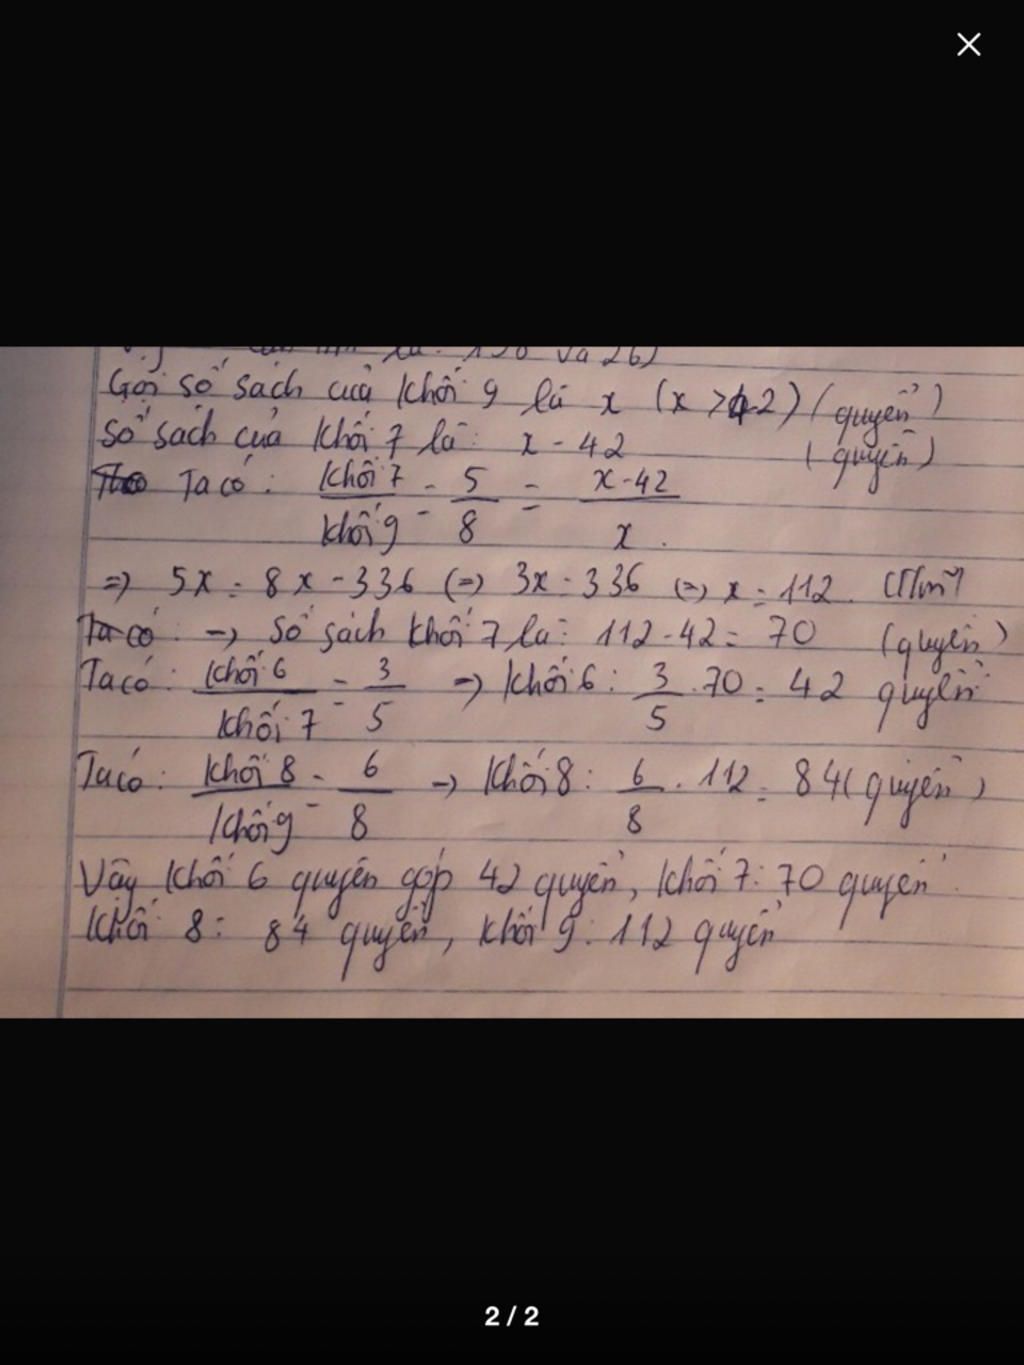 là: 130 và 26)
Gọi số sách của khối 9 là x (x > 42) (quyển)
Số sách của khối 7 là: x - 42 (quyển)
Ta có: khối 7 / khối 9 = 5/8 = x-42 / x.
=> 5x = 8x - 336 (=) 3x = 336 (=) x = 112. (Tm)
Ta có: -> Số sách khối 7 là: 112 - 42 = 70 (quyển)
Ta có: khối 6 / khối 7 = 3/5 -> khối 6: 3/5 . 70 = 42 quyển
Ta có: khối 8 / khối 9 = 6/8 -> khối 8: 6/8 . 112 = 84 (quyển)
Vậy khối 6 quyên góp 42 quyển, khối 7: 70 quyển.
khối 8: 84 quyển, khối 9: 112 quyển
2 / 2